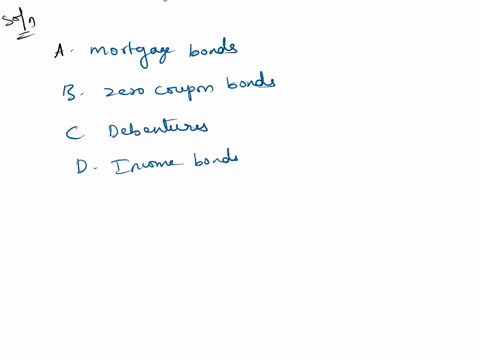 Soln
A. mortgage bonds
B. zero coupon bonds
C Debentures
D. Income bonds